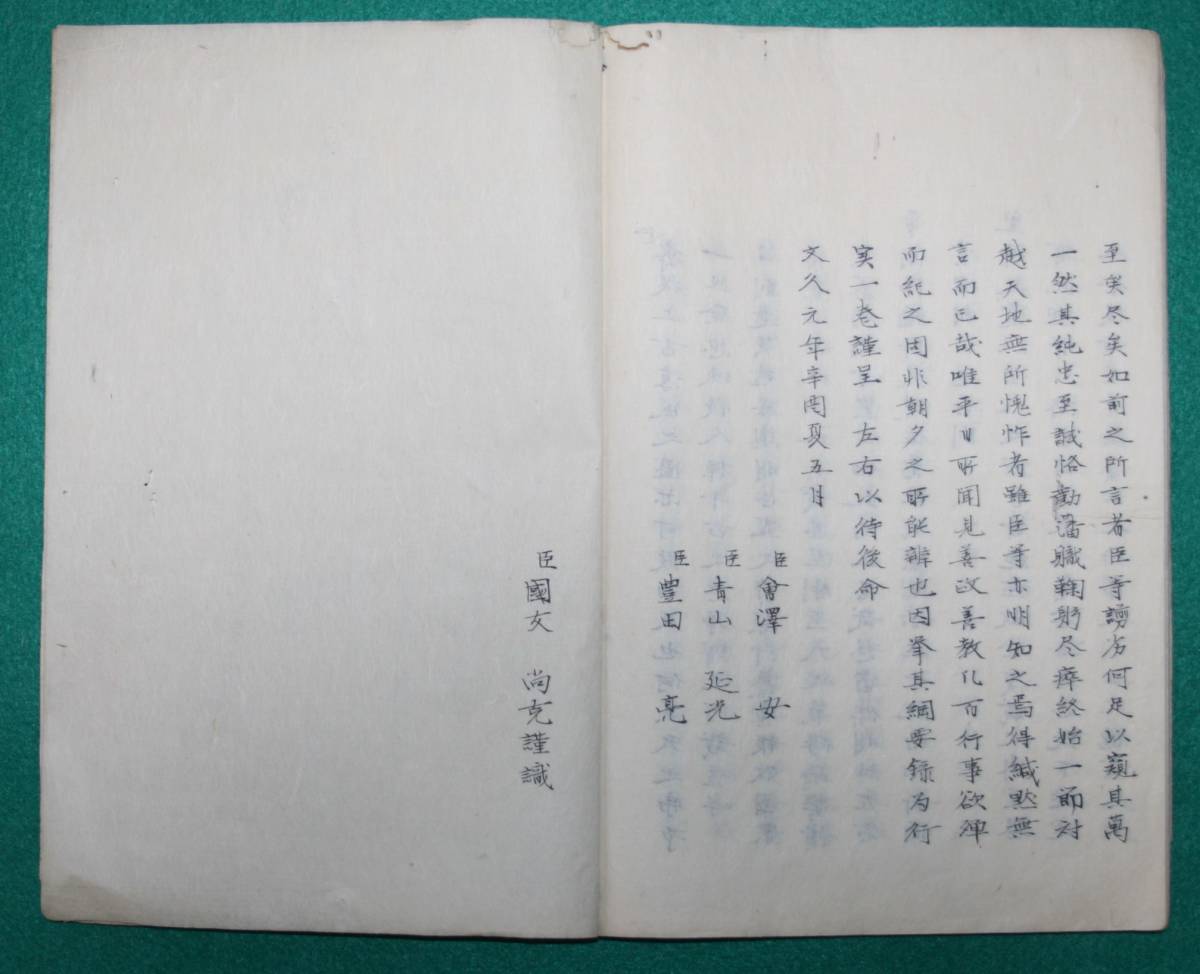 至矣尽矣如前之所言者臣等謭劣何足以窺其萬
一然其純忠至誠恪勤藩職鞠躬尽瘁終始一節対
越天地無所愧怍者雖臣等亦明知之焉得緘黙無
言而已哉唯平日所聞見善政善教凡百行事欲殫
而紀之固非朝夕之所能辨也因挙其綱要録为行
実一巻謹呈左右以待後命
文久元年辛酉夏五月
臣會澤 安
臣青山延光
臣豊田 亮
臣國友 尚克謹識